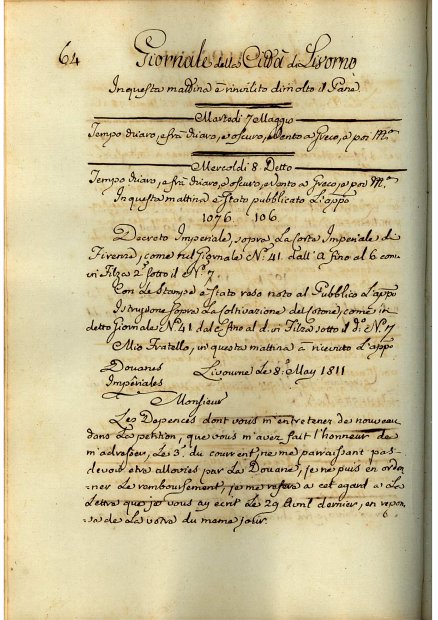 64 Giornale della Città di Livorno
In questa mattina è rinvilito di molto il Pane.
Martedì 7 Maggio
Tempo chiaro, e frà chiaro, e oscuro, Vento a Greco, e poi M.o
Mercoldì 8 Detto
Tempo chiaro, e frà chiaro, e oscuro, e Vento a Greco, e poi M.o
In questa mattina è stato pubblicato l'appo
1076. 106
Decreto Imperiale, sopra la Corte Imperiale di
Firenze, come nel Giornale N.o 41 dall' a fino al 6 com'
vi Filza 2.a sotto il N.o 7.
Con le Stampe è stato reso noto al Pubblico L'appo
Istruzione sopra la Coltivazione del Cotone, come in
detto Giornale N.o 41 dal c fino al d: vi Filza sotto il di N.o 7
Mio Fratello, in questa mattina à ricevuto L'appo
Douanes Livourne le 8. May 1811
Impériales
Monsieur
Les Depences dont vous m'entretenez de nouveau
dans la petition, que vous m'avez fait l'honneur de
m'adresser, le 3. du courent, ne me parraissant pas
devoir etre allouées par la Douane, je ne puis en ordon
ner le remboursement, je me refere a cet egard a la
Lettre que je vous ay ecrit le 29 Avril dernier, en repon
se de la votre du meme jour.